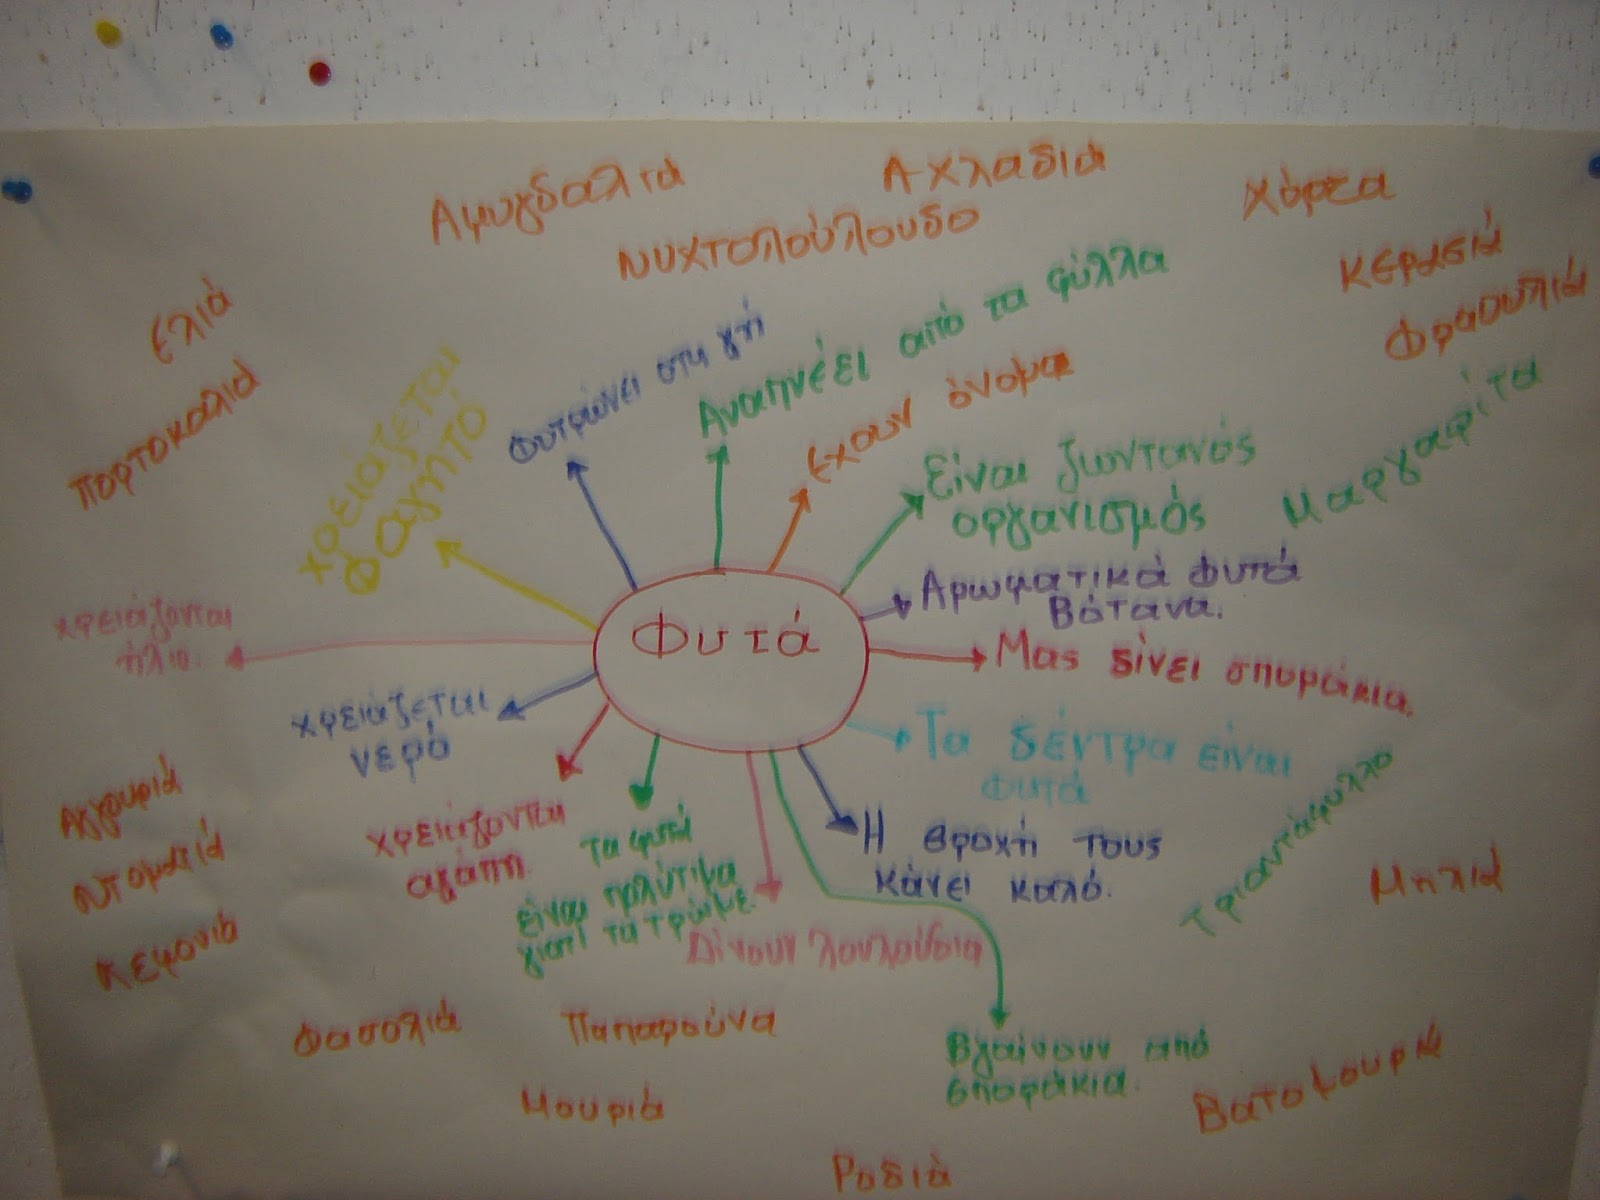 Αμυγδαλιά
Αχλαδιά
Χόρτα
Νυχτολούλουδο
Κερασιά
Φραουλιά
Ελιά
Πορτοκαλιά
χρειάζεται
Φαγητό
Φυτρώνει στη γη
Αναπνέει από τα φύλλα
έχουν όνομα
Είναι ζωντανός
οργανισμός
Μαργαρίτα
Αρωματικά Φυτά
Βότανα.
Φυτά
χρειάζονται
ήλιο.
Μας δίνει σποράκια.
χρειάζεται
νερό
Τα δέντρα είναι
Φυτά
Τριαντάφυλλο
Η βροχή τους
κάνει καλό.
χρειάζονται
αγάπη.
Τα φυτά
είναι πολύτιμα
γιατί τα τρώμε.
Δίνουν λουλούδια
Αγγουριά
Ντοματιά
Λεμονιά
Μηλιά
Φασολιά
Παπαρούνα
Βγαίνουν από
σποράκια.
Βατομουριά
Μουριά
Ροδιά